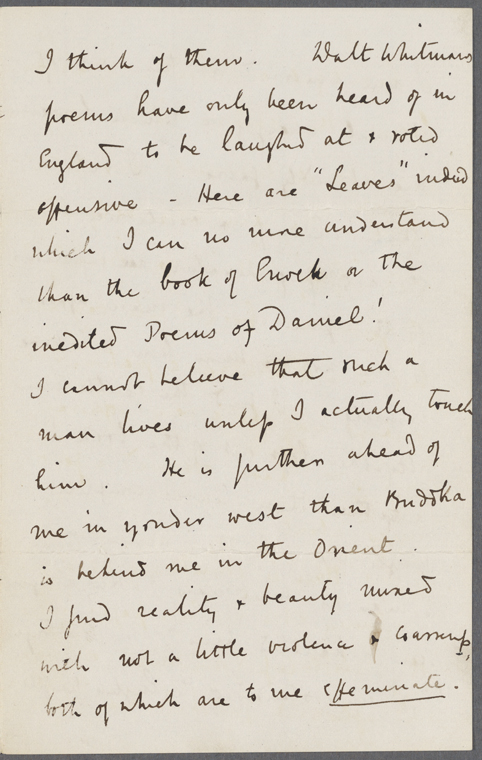 I think of them. Walt Whitmans
poems have only been heard of in
England to be laughed at & voted
offensive - Here are "Leaves" indeed
which I can no more understand
than the book of Enoch or the
inedited Poems of Daniel!
I cannot believe that such a
man lives unless I actually touch
him. He is further ahead of
me in yonder west than Buddha
is behind me in the Orient.
I find reality & beauty mixed
with not a little violence & coarseness,
both of which are to me effeminate.